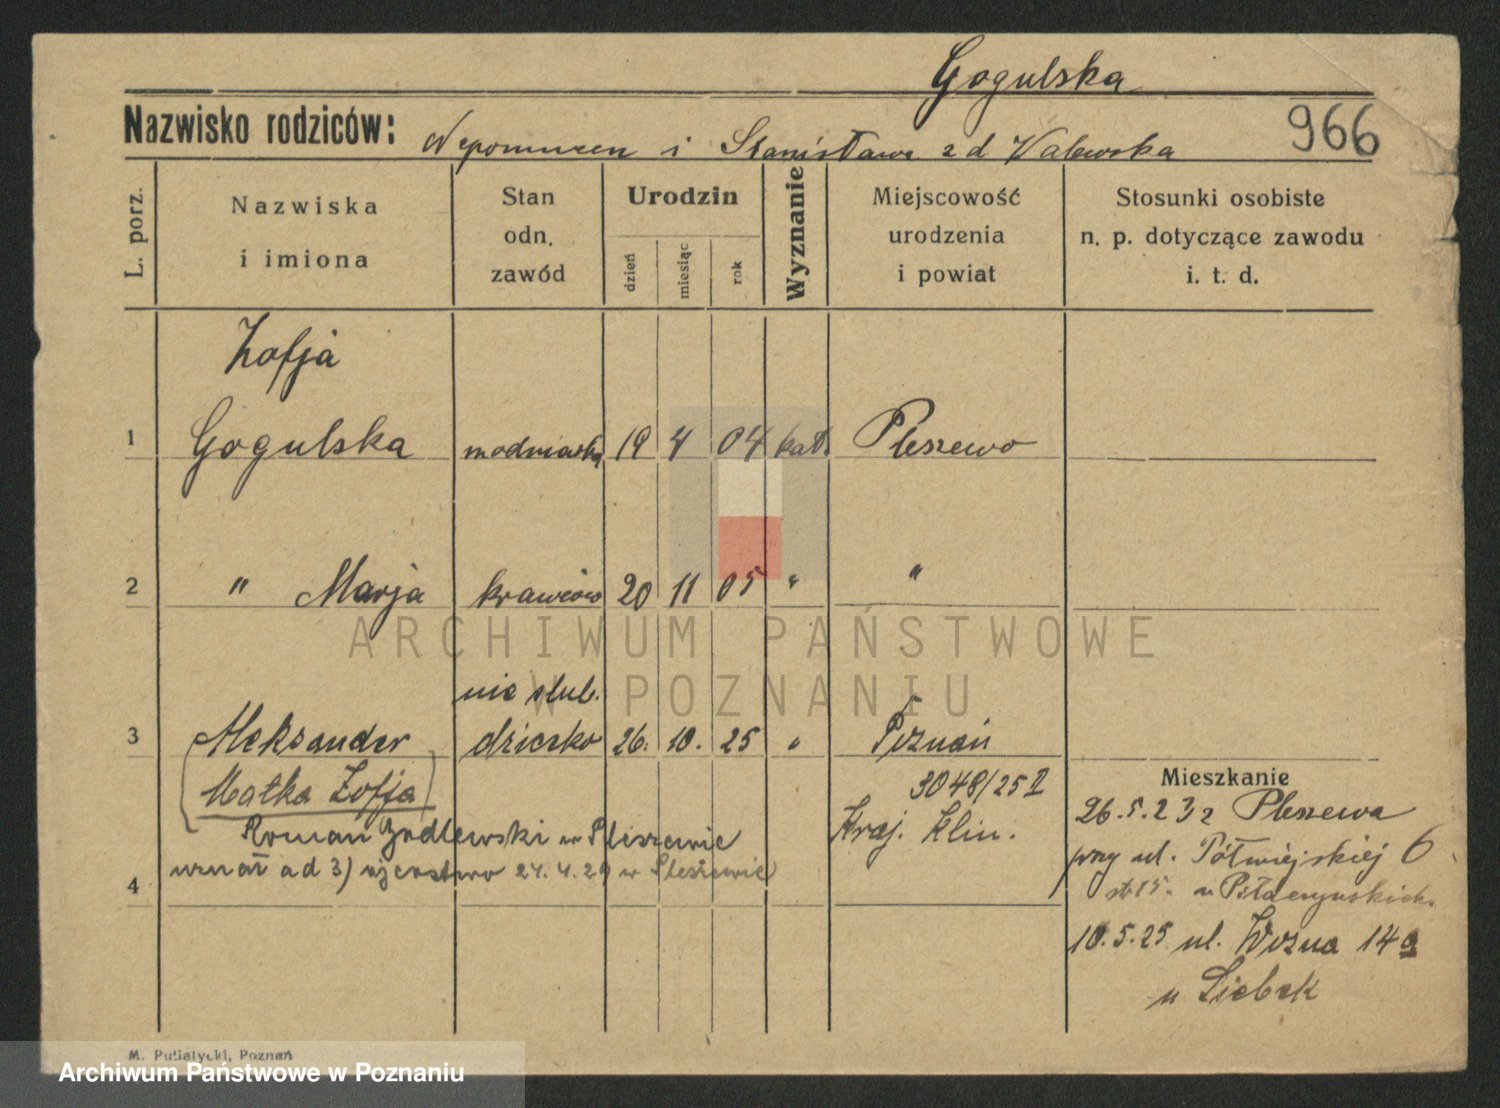 Gogulska
Nazwisko rodziców: Nepomucen i Stanisława z d Walewska
966
L. porz.
Nazwiska i imiona
Stan odn. zawód
Urodzin
dzień
miesiąc
rok
Wyznanie
Miejscowość urodzenia i powiat
Stosunki osobiste n. p. dotyczące zawodu i. t. d.
Zofja
1 Gogulska modniarka 19 4 04 kat. Pleszewo
2 " Marja krawcow 20 11 05 " "
nie slub.
3 Aleksander dziecko 26. 10. 25 " Poznań
(Matka Zofja) 3048/25 II
Roman w Pleszewie Kraj. Klin.
uznał ad 3) ojcostwo 24.4.29 w Pleszewie
4
Mieszkanie
26.5.23 z Pleszewa
przy ul. Półwiejskiej 6
str 15.
10.5.25 ul. Woźna 14a
u Liebek
M. Putiatycki, Poznań
ARCHIWUM PAŃSTWOWE
W POZNANIU
Archiwum Państwowe w Poznaniu